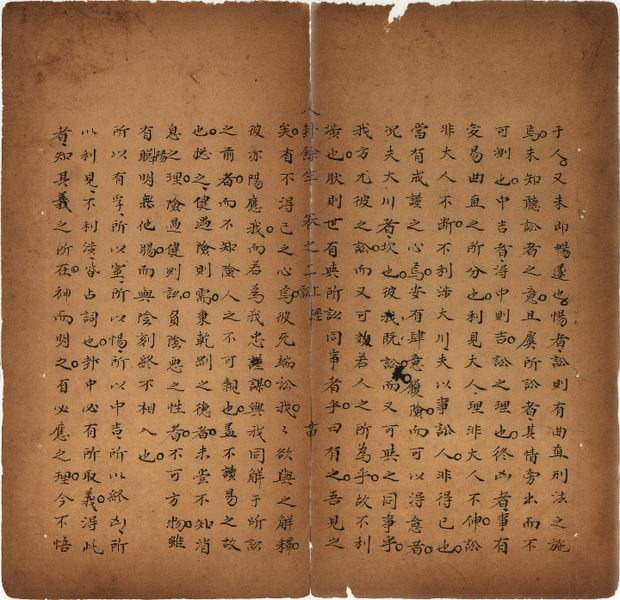 于人又未即暢遂也惕者訟則有曲直刑法之施
焉未知聽訟者之意且屢所訟者其情旁出而不
可測也中吉者得中則吉訟之理也終凶者事有
变易曲直之所分也利見大人理非大人不伸訟
非大人不断不利涉大川夫以事訟人非得已也
當有戒謹之心焉安有肆意履險而可以得意者
况夫大川者坎也彼我既訟而又可與之同事乎
我方尤彼之訟而又可效若人之所為乎故不利
涉也朕則世有與所訟同事者乎曰有之吾見之
八卦餘生 卷之二訟上經
矣有不得已之心焉彼无端訟我我欲與之解釋
彼亦陽應我而若為我忠謹謀與我同解于所訟
之前者而不知險人之不可親也盖不讀易之故
也挖之健遇險則需秉乾剛之德者未嘗不知消
息之理險遇健則訟負陰惡之性者不可方物雖
有聰明無他腸而與陰刻終不相入也
所以有孚所以窒所以惕所以中吉所以終凶所
以利見不利涉皆占詞也卦中必有所取義得此
者知其義之所在神而明之有必應之理今不悟